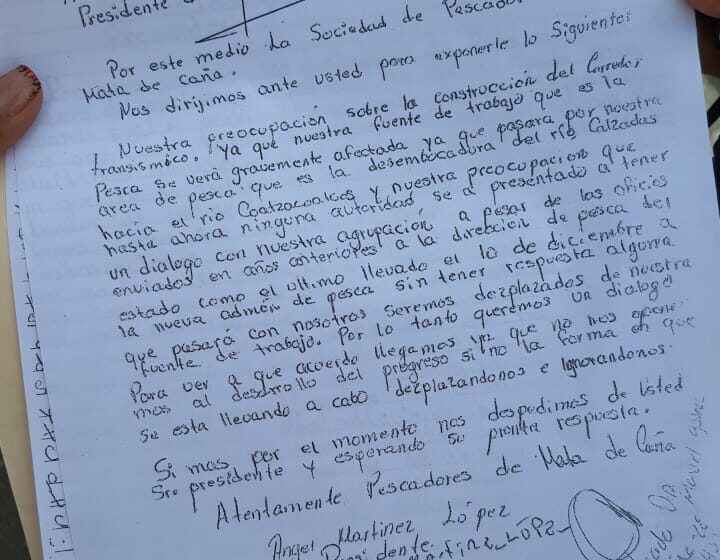 Presidente
Por este medio La Sociedad de Pescado
Mata de Caña.
Nos dirijimos ante usted para exponerle lo Siguiente:
Nuestra preocupación sobre la construcción del Corredor
transísmico. Ya que nuestra fuente de trabajo que es la
Pesca se verá gravemente afectada ya que pasara por nuestra
area de pesca que es la desembocadura del río Calzadas
hacia el río Coatzacoalcos y nuestra preocupacion que
hasta ahora ninguna autoridad se a presentado a tener
un dialogo con nuestra agrupación, a pesar de las oficios
enviados en años anteriores a la direccion de pesca del
estado como el ultimo llevado el 10 de diciembre a
la nueva admón de pesca sin tener respuesta alguna
que pasará con nosotros seremos dezplazados de nuestra
fuente de trabajo. Por lo tanto queremos un dialogo
Para ver a que acuerdo llegamos ya que no nos opone-
mos al desarrollo del progreso si no la forma en que
Se esta llevando a cabo dezplazandonos e Ignorandonos.
Si mas por el momento nos despedimos de Usted
Sre presidente y esperando su pronta respuesta.
Atentamente Pescadores de Mata de Caña
Angel Martinez López